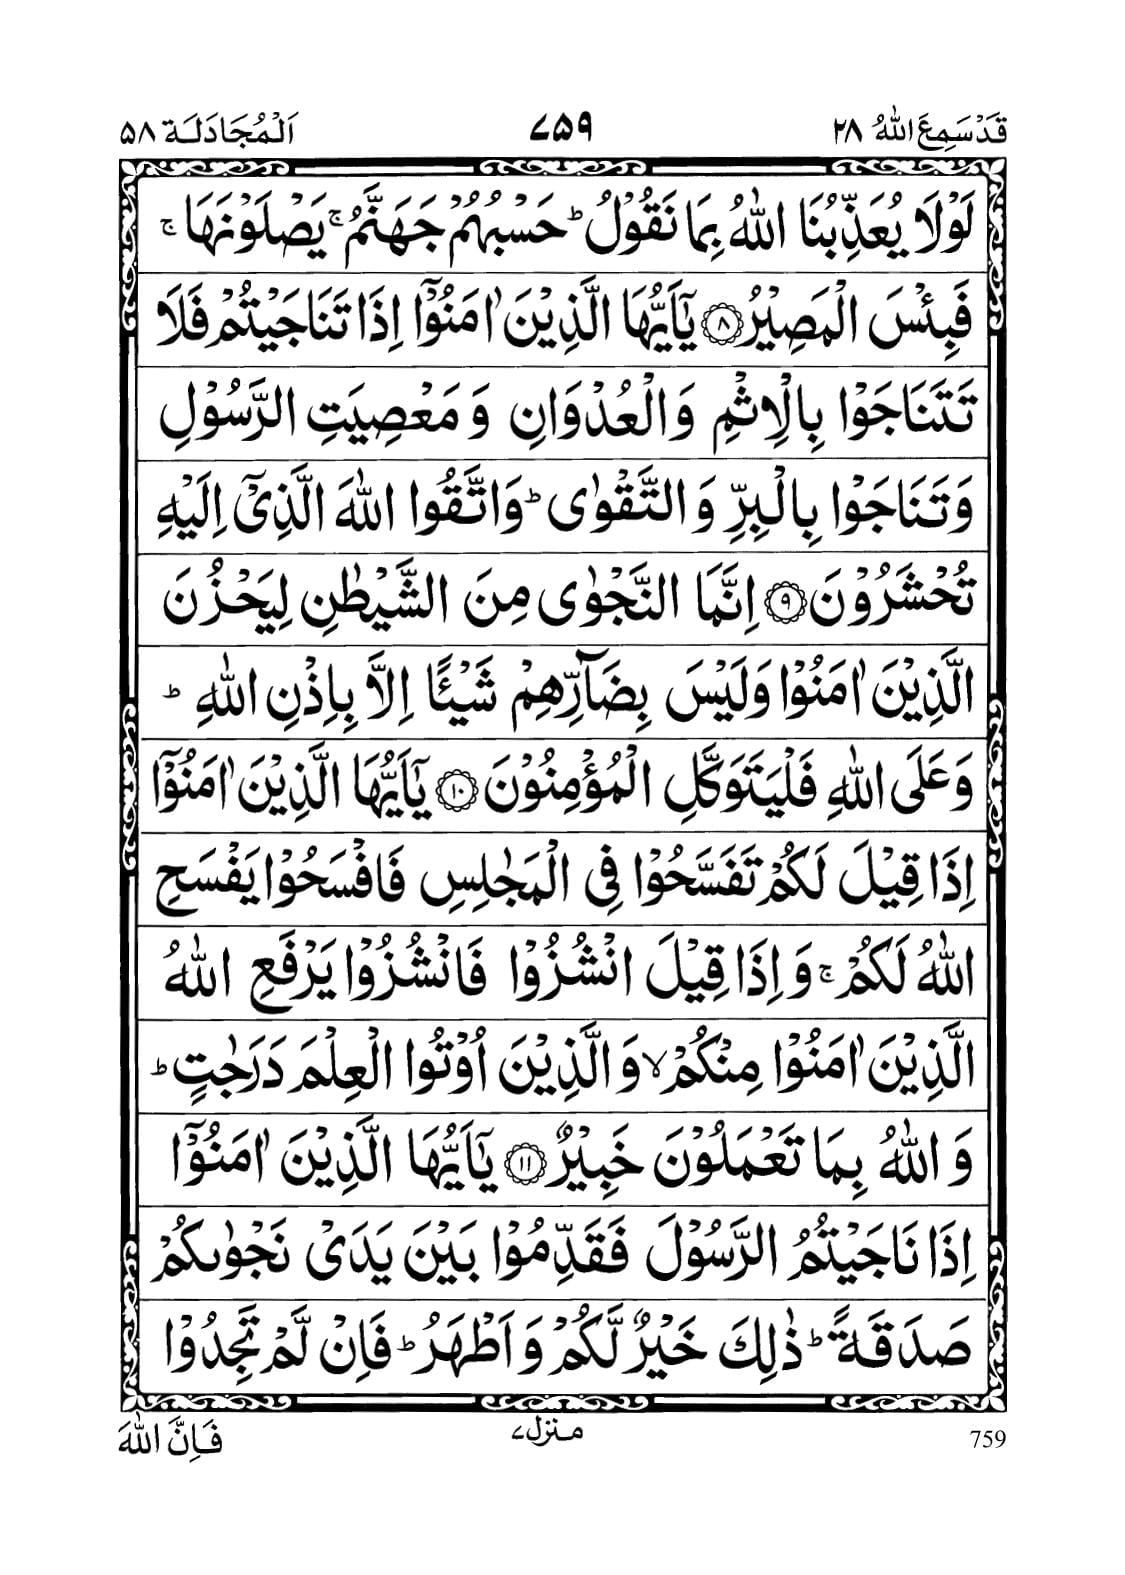 قَدْ سَمِعَ اللّٰهُ ٢٨
٧٥٩
اَلْمُجَادَلَة ٥٨
لَوْلَا يُعَذِّبُنَا اللّٰهُ بِمَا نَقُوْلُ ؕ حَسْبُهُمْ جَهَنَّمُ ۚ يَصْلَوْنَهَا ۚ
فَبِئْسَ الْمَصِيْرُ ﴿٨﴾ يٰۤاَيُّهَا الَّذِيْنَ اٰمَنُوْۤا اِذَا تَنَاجَيْتُمْ فَلَا
تَتَنَاجَوْا بِالْاِثْمِ وَالْعُدْوَانِ وَ مَعْصِيَتِ الرَّسُوْلِ
وَ تَنَاجَوْا بِالْبِرِّ وَ التَّقْوٰى ؕ وَاتَّقُوا اللّٰهَ الَّذِىْۤ اِلَيْهِ
تُحْشَرُوْنَ ﴿٩﴾ اِنَّمَا النَّجْوٰى مِنَ الشَّيْطٰنِ لِيَحْزُنَ
الَّذِيْنَ اٰمَنُوْا وَلَيْسَ بِضَآرِّهِمْ شَيْـًٔا اِلَّا بِاِذْنِ اللّٰهِ ؕ
وَ عَلَى اللّٰهِ فَلْيَتَوَكَّلِ الْمُؤْمِنُوْنَ ﴿١٠﴾ يٰۤاَيُّهَا الَّذِيْنَ اٰمَنُوْۤا
اِذَا قِيْلَ لَكُمْ تَفَسَّحُوْا فِى الْمَجٰلِسِ فَافْسَحُوْا يَفْسَحِ
اللّٰهُ لَكُمْ ۚ وَ اِذَا قِيْلَ انْشُزُوْا فَانْشُزُوْا يَرْفَعِ اللّٰهُ
الَّذِيْنَ اٰمَنُوْا مِنْكُمْ ۙ وَ الَّذِيْنَ اُوْتُوا الْعِلْمَ دَرَجٰتٍ ؕ
وَ اللّٰهُ بِمَا تَعْمَلُوْنَ خَبِيْرٌ ﴿١١﴾ يٰۤاَيُّهَا الَّذِيْنَ اٰمَنُوْۤا
اِذَا نَاجَيْتُمُ الرَّسُوْلَ فَقَدِّمُوْا بَيْنَ يَدَىْ نَجْوٰىكُمْ
صَدَقَةً ؕ ذٰلِكَ خَيْرٌ لَّكُمْ وَ اَطْهَرُ ؕ فَاِنْ لَّمْ تَجِدُوْا
فَاِنَّ اللّٰهَ
منزل ٧
759